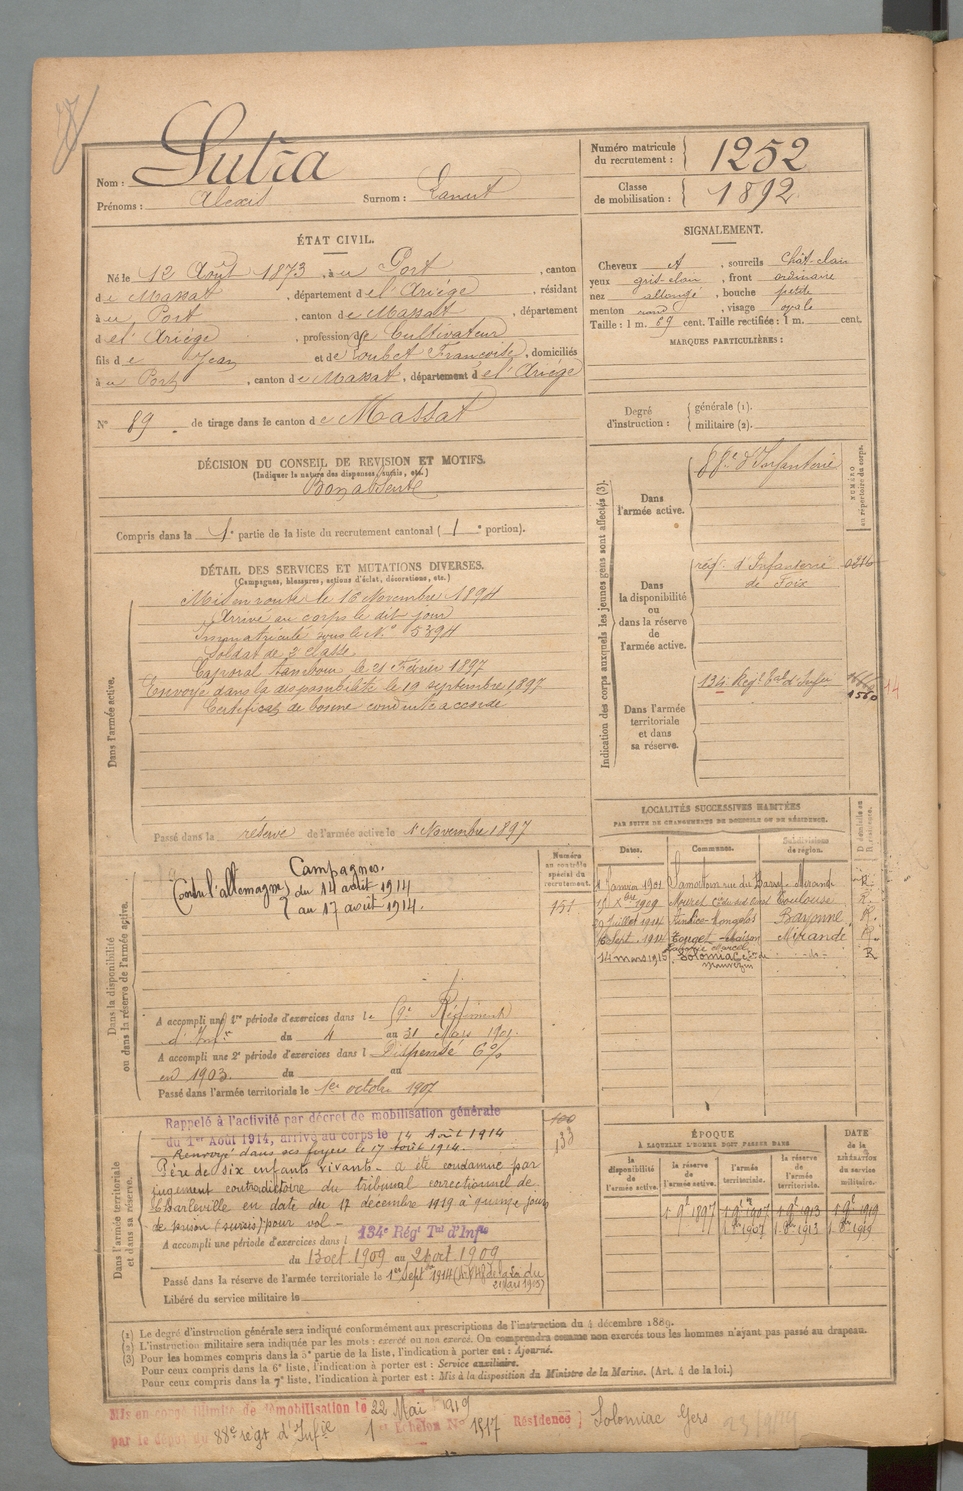 Nom : Sutra
Prénoms : Alexis Surnom :
Numéro matricule du recrutement : 1252
Classe de mobilisation : 1892
ÉTAT CIVIL.
Né le 12 Août 1873, à u Port, canton
de Massat, département de l'Ariège, résidant
à u Port, canton de Massat, département
de l'Ariège, profession de Cultivateur
fils de Jean et de Loubet Françoise, domiciliés
à u Port, canton de Massat, département de l'Ariège
N° 89 de tirage dans le canton de Massat
SIGNALEMENT.
Cheveux et, sourcils chât-clair
yeux gris-clair, front ordinaire
nez allongé, bouche petite
menton rond, visage ovale
Taille : 1 m. 89 cent. Taille rectifiée : 1 m. cent.
MARQUES PARTICULIÈRES :
Degré d'instruction : générale (1).
militaire (2).
DÉCISION DU CONSEIL DE REVISION ET MOTIFS.
(Indiquer la nature des dispenses, sursis, etc.)
Bon absent
Compris dans la 1e partie de la liste du recrutement cantonal (1e portion).
DÉTAIL DES SERVICES ET MUTATIONS DIVERSES.
(Campagnes, blessures, actions d'éclat, décorations, etc.)
Dans l'armée active.
Mis en route le 16 Novembre 1894
Arrivé au corps le dit jour
Immatriculé sous le N° 5894
Soldat de 2e classe
Caporal tambour le 21 Février 1897
Envoyé dans la disponibilité le 19 septembre 1897
Certificat de bonne conduite accordé
Passé dans la réserve de l'armée active le 1 Novembre 1897
Indication des corps auxquels les jeunes gens sont affectés (3).
NUMÉRO au répertoire du corps.
Dans l'armée active.
88e d'Infanterie
Dans la disponibilité ou dans la réserve de l'armée active.
rég. d'Infanterie
de Foix
Dans l'armée territoriale et dans sa réserve.
134e Regt tal d'Infie
1560 14
Dans la disponibilité ou dans la réserve de l'armée active.
Campagnes.
Contre l'allemagne du 14 août 1914
au 17 août 1914.
Numéro au contrôle spécial du recrutement.
151
A accompli une 1re période d'exercices dans le 59e Régiment
d'Infie du 4 au 31 Mars 1901.
A accompli une 2e période d'exercices dans l Dispensé 6%
en 1903. du au
Passé dans l'armée territoriale le 1er octobre 1907
LOCALITÉS SUCCESSIVES HABITÉES
PAR SUITE DE CHANGEMENTS DE DOMICILE OU DE RÉSIDENCE.
Dates. Communes. Subdivisions de région. D domicile ou R résidence.
1 Janvier 1901 Mirande R.
1909 Muret Toulouse R.
20 Juillet 1914 Bayonne R.
1914 Touget Mirande R.
14 mars 1915 Solomiac -do- R
Mauvezin
Dans l'armée territoriale et dans sa réserve.
Rappelé à l'activité par décret de mobilisation générale
du 1er Août 1914, arrivé au corps le 14 Août 1914
Renvoyé dans ses foyers le 17 août 1914.
Père de six enfants vivants - a été condamné par
jugement contradictoire du tribunal correctionnel de
Charleville en date du 17 décembre 1919 à quinze jours
de prison (sursis) pour vol -
100
133
A accompli une période d'exercices dans l 134e Régt Tal d'Infie
du 13 oct 1909 au 21 oct. 1909
Passé dans la réserve de l'armée territoriale le 1er Septbre 1914
Libéré du service militaire le
ÉPOQUE
À LAQUELLE L'HOMME DOIT PASSER DANS
la disponibilité de l'armée active. la réserve de l'armée active. l'armée territoriale. la réserve de l'armée territoriale.
DATE de la LIBÉRATION du service militaire.
1 9bre 1897 1 9bre 1907 1 9bre 1913 1 9bre 1919
1 8bre 1907 1 8bre 1913 1 8bre 1919
(1) Le degré d'instruction générale sera indiqué conformément aux prescriptions de l'instruction du 4 décembre 1889.
(2) L'instruction militaire sera indiquée par les mots : exercé ou non exercé. On comprendra comme non exercés tous les hommes n'ayant pas passé au drapeau.
(3) Pour les hommes compris dans la 5e partie de la liste, l'indication à porter est : Ajourné.
Pour ceux compris dans la 6e liste, l'indication à porter est : Service auxiliaire.
Pour ceux compris dans la 7e liste, l'indication à porter est : Mis à la disposition du Ministre de la Marine. (Art. 4 de la loi.)
Mis en congé illimité de démobilisation le 22 Mai 1919
par le dépôt du 88e régt d'Infie 1er Echelon N° 1517 Résidence : Solomiac Gers